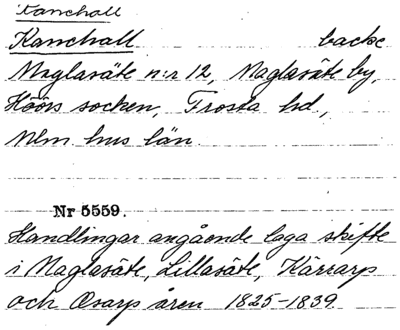 Kanehall
Kanehall backe
Maglasäte n:r 12, Maglasäte by,
Höörs socken, Frosta hd.,
Mlm hus län.
Nr 5559.
Handlingar angående laga skifte
i Maglasäte, Lillasäte, Kärrarp
och Osarp åren 1825-1839